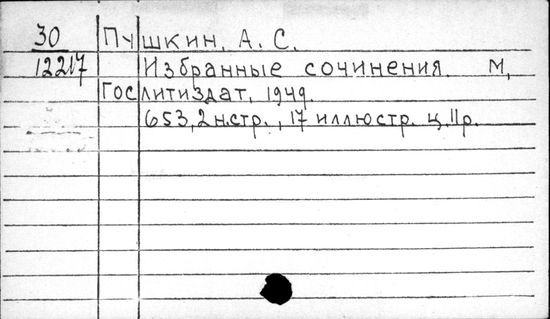 30 Пушкин, А. С.
12217 Избранные сочинения. М,
Гослитиздат, 1949.
653, 2 н.стр., 17 иллюстр. ц. 11 р.